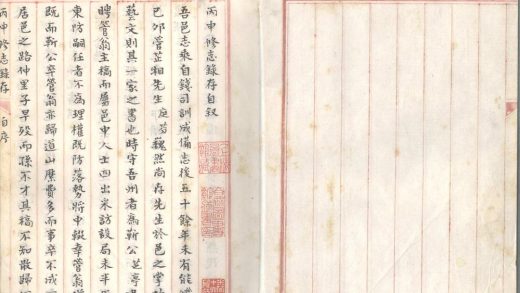 丙申修志錄存自叙
吾邑志乘自錢司訓成備志後五十餘年未有能
已卯管芷湘先生庭芬巍然尚存先生於邑之掌
藝文則其一家之書也時守吾州者為靳公芝亭
聘管翁主稿而屬邑中人士四出采訪設局未半
東防嗣任者不為理權既防落勢將中輟幸管翁
既而靳公卒管翁亦歸道山縻費多而事卒不成
居邑之路仲里子早歿而孫不才其稿不知散歸
丙申修志錄存 自序